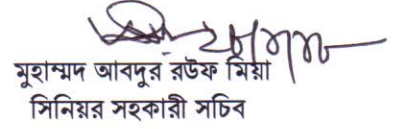 মুহাম্মদ আবদুর রউফ মিয়া
সিনিয়র সহকারী সচিব